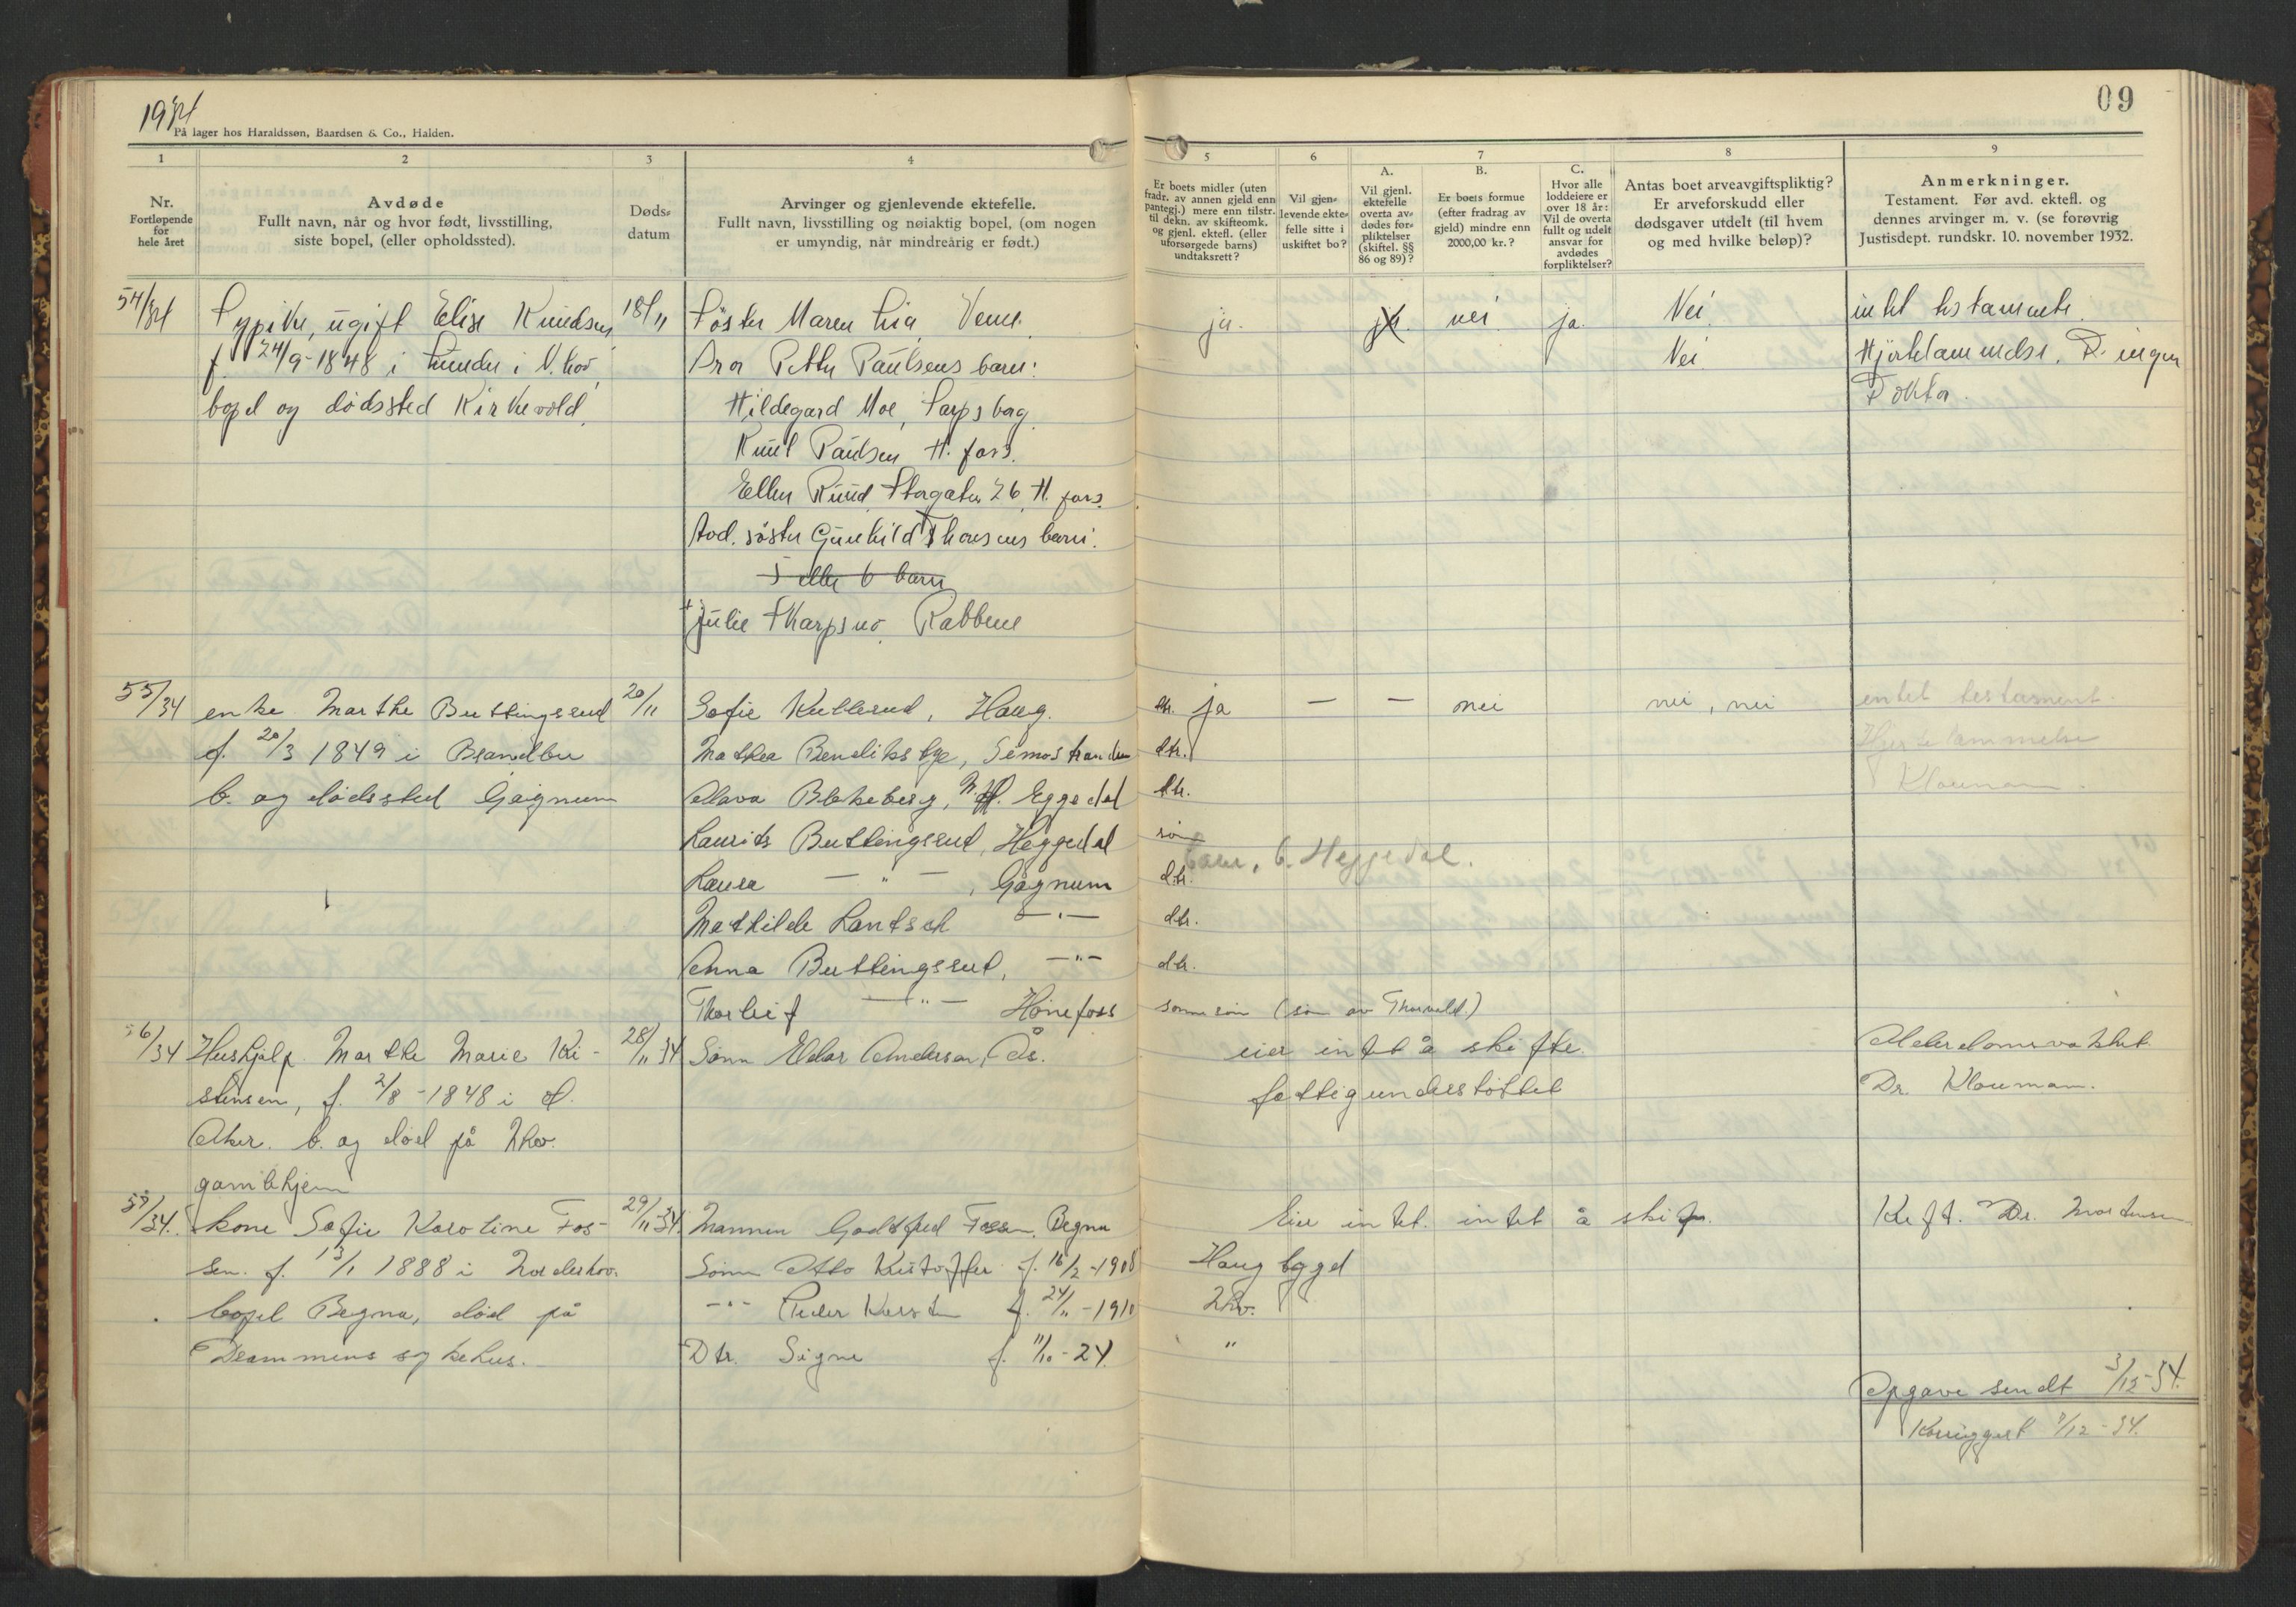 1934
09
På lager hos Haraldssøn, Baardsen & Co., Halden.
1 2 3 4 5 6 7 8 9
Nr.
Fortløpende
for
hele året
Avdøde
Fullt navn, når og hvor født, livsstilling,
siste bopel, (eller opholdssted).
Døds-
datum
Arvinger og gjenlevende ektefelle.
Fullt navn, livsstilling og nøiaktig bopel, (om nogen
er umyndig, når mindreårig er født.)
Er boets midler (uten
fradr. av annen gjeld enn
pantegj.) mere enn tilstr.
til dekn. av skifteomk.
og gjenl. ektefl. (eller
uforsørgede barns)
undtaksrett?
Vil gjen-
levende ekte-
felle sitte i
uskiftet bo?
A.
Vil gjenl.
ektefelle
overta av-
dødes for-
pliktelser
(skiftel. §§
86 og 89)?
B.
Er boets formue
(efter fradrag av
gjeld) mindre enn
2000,00 kr.?
C.
Hvor alle
loddeiere er
over 18 år:
Vil de overta
fullt og udelt
ansvar for
avdødes
forpliktelser?
Antas boet arveavgiftspliktig?
Er arveforskudd eller
dødsgaver utdelt (til hvem
og med hvilke beløp)?
Anmerkninger.
Testament. Før avd. ektefl. og
dennes arvinger m. v. (se forøvrig
Justisdept. rundskr. 10. november 1932.
54/34 Sypike, ugift Elise Knudsen 18/11 Søster Maren Lia, Veme. ja. ja. nei. ja. Nei. intet testamente.
f. 24/9-1848 i Lunder i N.hov, Bror Petter Paulsens barn: Nei. Hjertelammelse.
bopel og dødssted Kirkevold. Hildegard Moe, Sarpsborg. Doktor.
Knut Paulsen H. foss.
Ellen Ruud Storgaten 26 H. foss.
Avd. søster Gunhild Thorsens barn:
5 eller 6 barn
Julie Skarpsno, Rabbene
55/34 enke Marthe Buttingsrud 20/11 Sofie Kullerud, Haug. dtr. ja — — nei nei, nei intet testament.
f. 20/3 1849 i Brandbu Mathea Bendiksbye, Semostranden dtr. Hjertelammelse
b. og dødssted Gagnum Alava Blekeberg, N. Eggedal dtr. Klouman.
Laurits Buttingsrud, Heggedal søn
barn, b. Heggedal.
Laura — " — , Gagnum dtr.
Mathilde Lantsch — " — dtr.
Anna Buttingsrud, — " — dtr.
Thorleif — " — Hønefoss sønnesøn (søn av Thorvald.)
56/34 Hushjelp Marthe Marie Kri- 28/11 34 Sønn Eldor Andersen, Ås. eier intet å skifte. Alderdomsvakhet.
stensen, f. 2/8-1848 i Ø. fattigunderstøttet Dr. Klouman.
Aker. b. og død på Nhov.
gamlehjem
57/34. kone Sofie Karoline Fos- 29/11-34. Mannen Godtfred Fossen, Begna Eier intet. intet å skifte. Kreft. Dr. Mortensen
sen. f. 13/1 1888 i Norderhov. Sønn Otto Kristoffer f. 16/2-1908 Haug bygd
bopel Begna, død på — " — Peder Karsten f. 24/11-1910 Nhov.
Drammens sykehus. Dtr. Signe f. 11/10-24. "
Opgave sendt 3/12-34.
Korriggert 7/12-34.